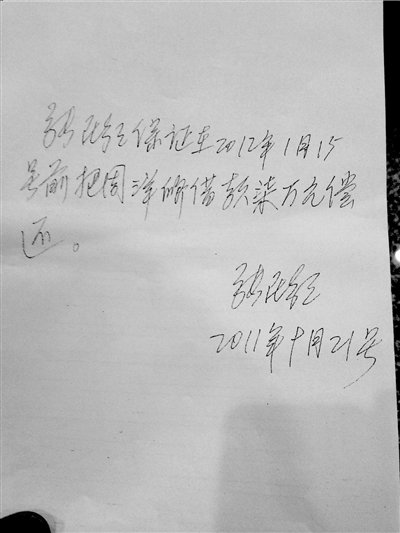 保证在2012年1月15
号前把周洋的借款柒万元偿
还。
2011年十月21号